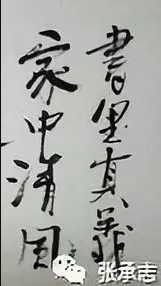 書里真義
家中清風
张承志